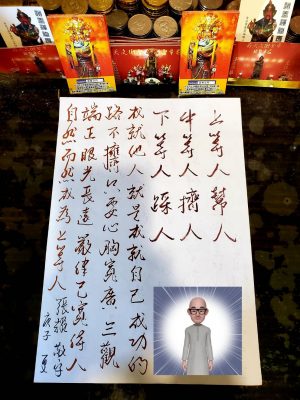 上等人 幫人
中等人 擠人
下等人 踩人
成就他人就是成就自己成功的
路不擠只要心胸寬廣三觀
端正眼光長遠嚴律己寬待人
自然而然成為上等人 張
庚子 夏